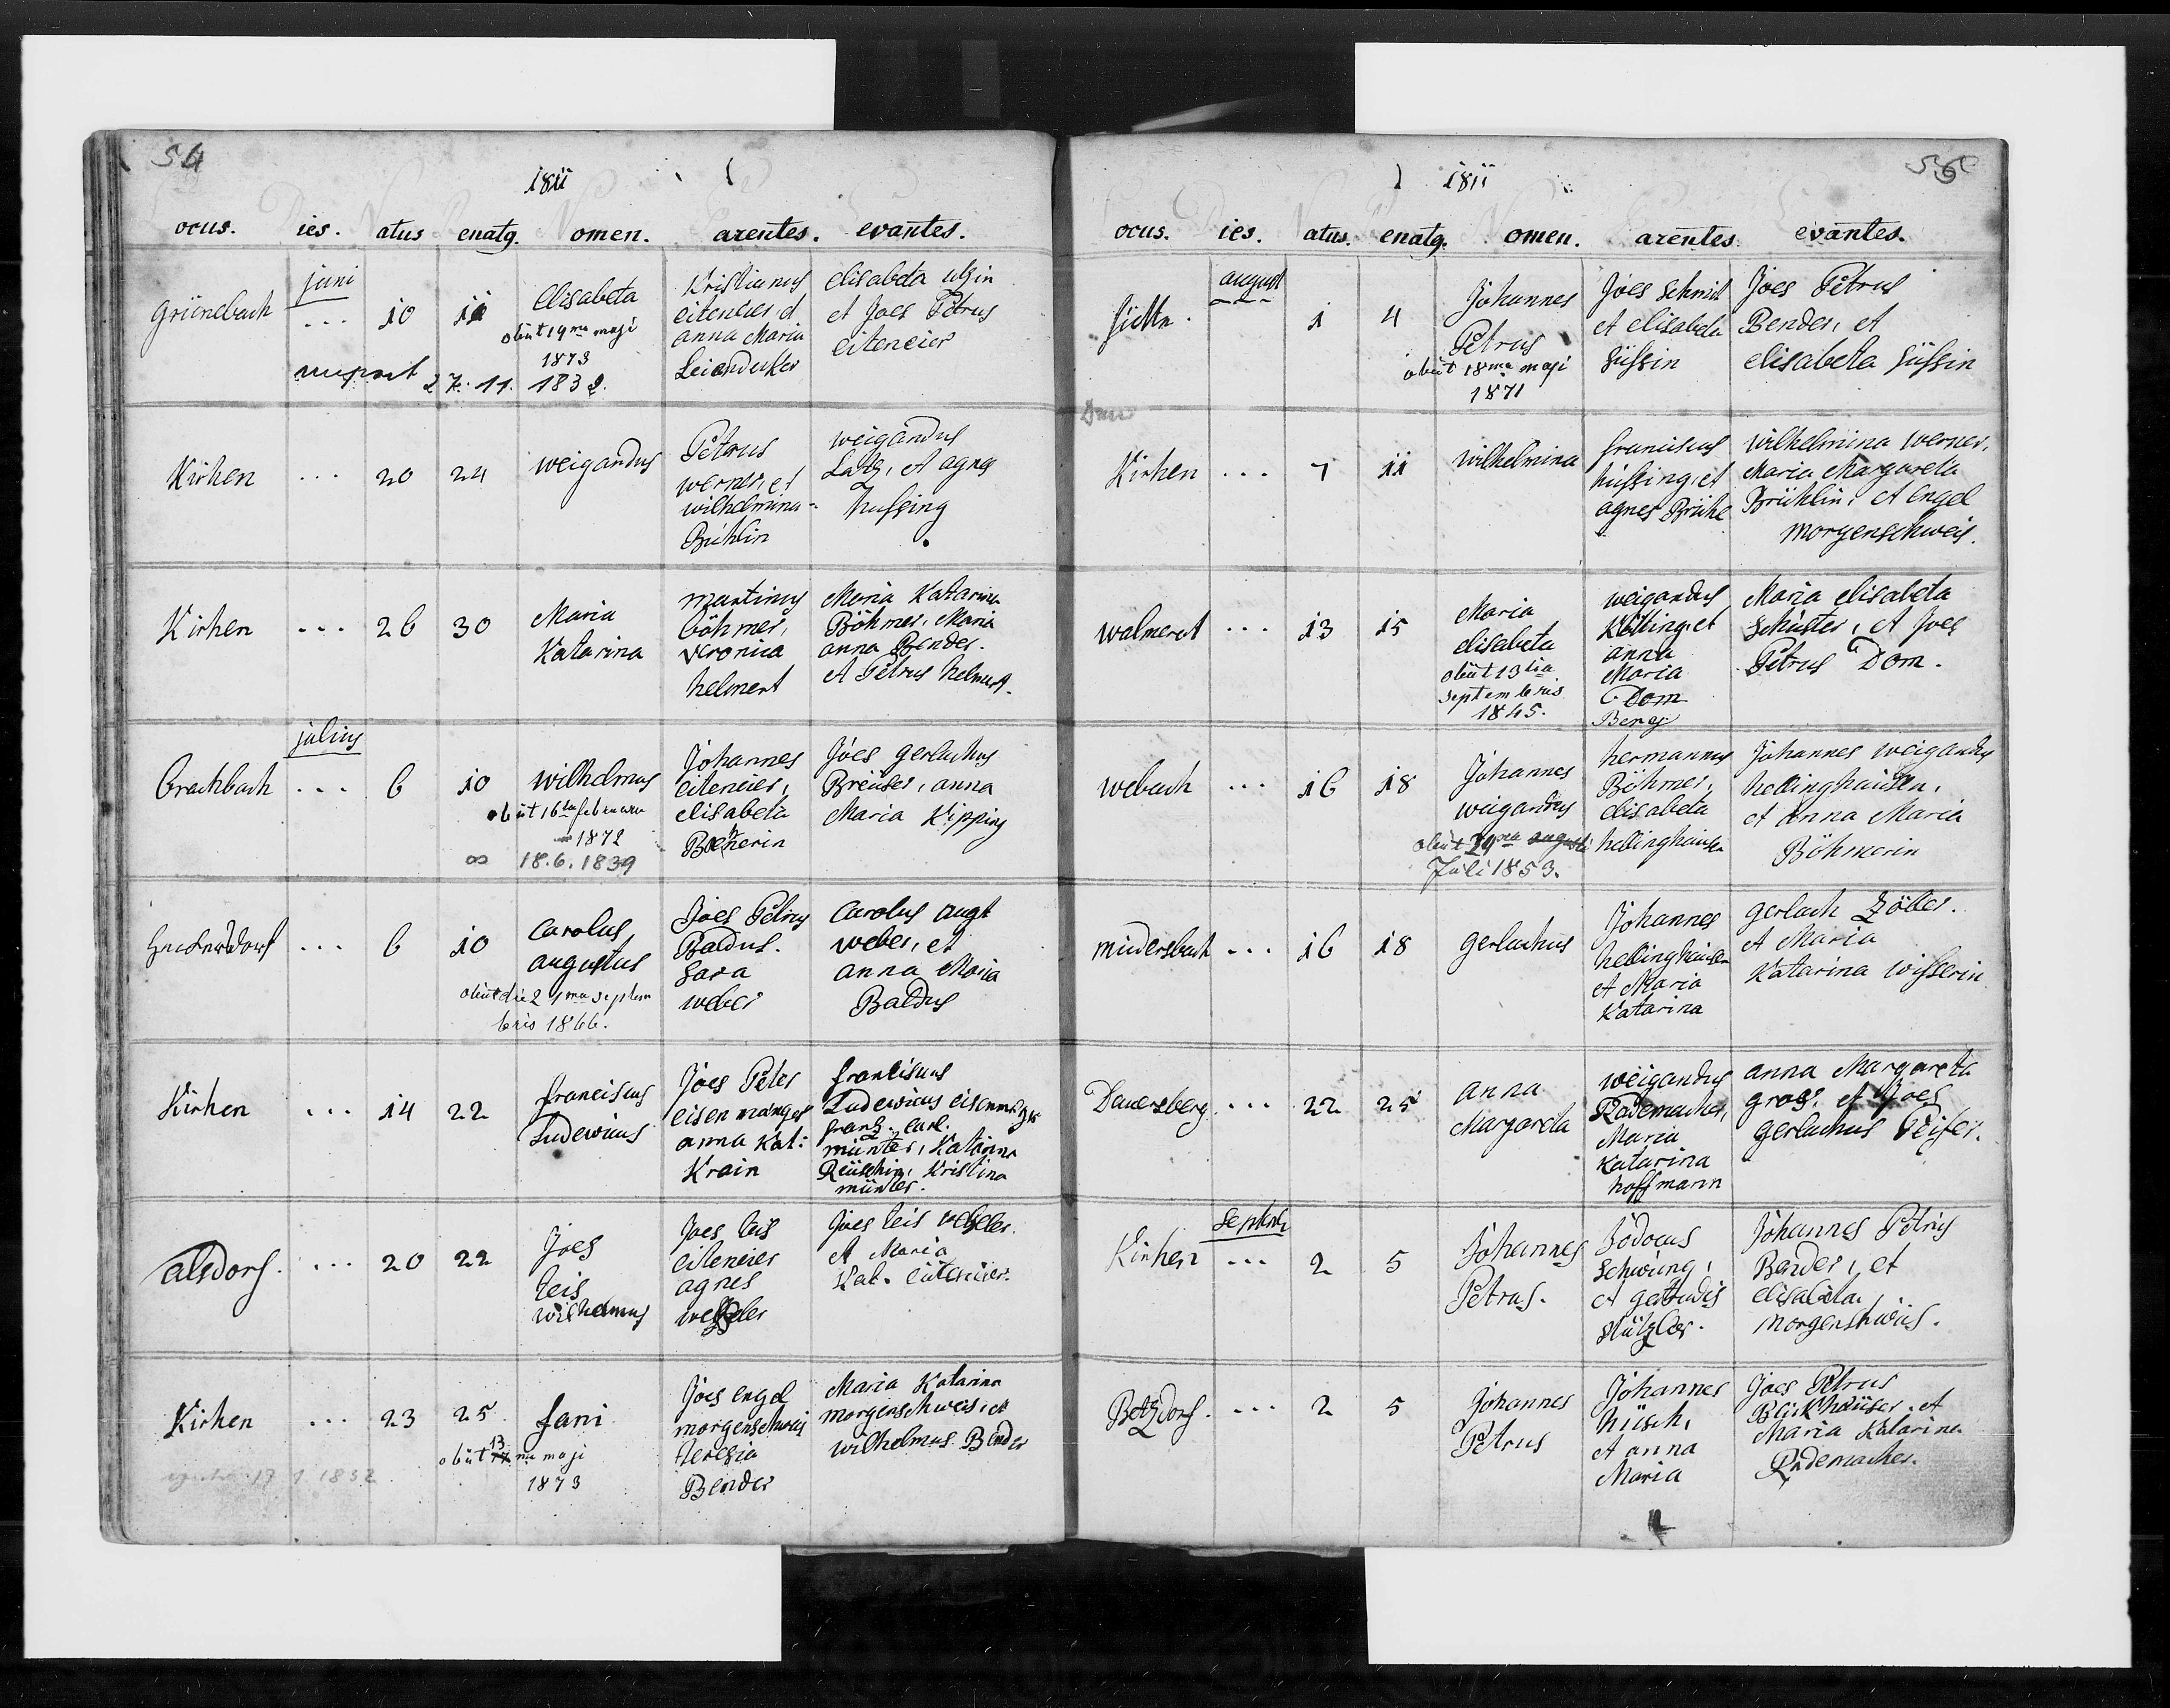 54
1811
ocus. ies. atus enatg. omen. arentes. evantes.
juni
Grünebach ... 10 11 Elisabeta
obiit 19ma maji
1873
nupsit 27. 11. 1832.
Kristianus
eiteneier et
anna Maria
Leiendecker
elisabeta
et Joes Petrus
eiteneier
Kirhen ... 20 24 weigandus
Petrus
werner, et
wilhelmina
Brühlin
weigandus
Lutz, et agnes
hussing
Kirhen ... 26 30 Maria
Katarina
martinus
böhmer,
veronica
helmert
Maria Katarina
Böhmer, Maria
anna Bender.
et Petrus helmert.
julius
Brachbach ... 6 10 wilhelmus
obiit 16ta februarii
1872
∞ 18. 6. 1839
Johannes
eiteneier,
elisabeta
Joes gerlachus
Breuser, anna
Maria Kipping
... 6 10 Carolus
augustus
obiit die 21ma septem
bris 1866.
Joes Petrus
Baldus.
Sara
weber
Carolus augt
weber, et
anna Maria
Baldus
Kirhen ... 14 22 franciscus
Ludevicus
Joes Peter
eisenmanger
anna Kat:
Krain
franciscus
Ludevicus eisenmanger
franz. Carl.
münter, Katarina
Reüschin, Kristina
münter.
alsdorf. ... 20 22 Joes
teis
wilhelmus
Joes teis
eiteneier
agnes
Joes teis
et Maria
Kat. eiteneier.
Kirhen ... 23 25. fani
obiit 13 ma maji
1873
17 1 1832
Joes engel
morgenschweis
teresia
Bender
Maria Katarina
morgenschweis, et
wilhelmus Bender
1811
ocus. ies. atus. enatg. omen. arentes. evantes.
august
... 1 4 Johannes
Petrus
obiit 18ma maji
1871
Joes Schmit
et elisabeta
Süssin
Joes Petrus
Bender, et
elisabeta Süssin
Kirhen ... 7 11 wilhelmina
franciscus
hussing, et
agnes Brühl
wilhelmina werner,
Maria Margareta
Brühlin, et Engel
morgenschweis.
walmerot ... 13 15 Maria
elisabeta
obiit 13tia
septembris
1845.
weigandus
Kölling, et
anna
Maria
Dom
Berg
Maria elisabeta
Schuster, et Joes
Petrus Dom.
webach ... 16 18 Johannes
weigandus
obiit 29na augusti
Juli 1853.
hermannus
Böhmer,
elisabeta
hellinghausen
Johannes weigandus
hellinghausen,
et anna Maria
Böhmerin
mudersbach ... 16 18 gerlachus
Johannes
hellinghausen
et Maria
Katarina
gerlach Zöller.
et Maria
Katarina wisserin
Dauersberg ... 22 25 anna
Margareta
weigandus
Rademacher,
Maria
Katarina
hoffmann
anna Margareta
gros. et Joes
gerlachus Peifer.
Septemb
Kirhen ... 2 5 Johannes
Petrus.
Jodocus
Schwung,
et gertrudis
Stützler.
Johannes Petrus
Bender, et
elisabeta
morgenschweis.
Betzdorf. ... 2 5 Johannes
Petrus
Johannes
hüsch,
et anna
Maria
Joes Petrus
Blickhäuser, et
Maria Katarina
Rademacher.